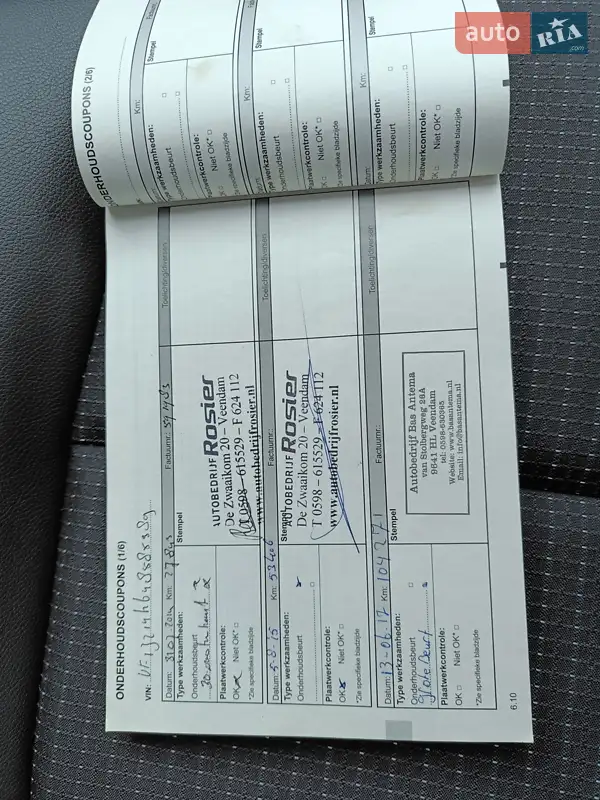 auto
RIA
.com
ONDERHOUDSCOUPONS (2/6)
Km:
Stempel
Type werkzaamheden:
Onderhoudsbeurt
Plaatwerkcontrole:
Niet OK*
*Zie specifieke bladzijde
Km:
Stempel
Type werkzaamheden:
Onderhoudsbeurt
Plaatwerkcontrole:
Niet OK*
*Zie specifieke bladzijde
Km:
Stempel
Type werkzaamheden:
Onderhoudsbeurt
Plaatwerkcontrole:
OK Niet OK*
*Zie specifieke bladzijde
ONDERHOUDSCOUPONS (1/6)
VIN:
Datum: Km: 27843 Factuurnr.: Toelichting/diversen
Type werkzaamheden:
Stempel
Onderhoudsbeurt
AUTOBEDRIJF Rosier
De Zwaaikom 20 – Veendam
T 0598 – 615529 – F 624 112
www.autobedrijfrosier.nl
Plaatwerkcontrole:
OK Niet OK*
*Zie specifieke bladzijde
Datum: 5-8-15 Km: 53406 Factuurnr.: Toelichting/diversen
Type werkzaamheden:
Stempel
Onderhoudsbeurt
AUTOBEDRIJF Rosier
De Zwaaikom 20 – Veendam
T 0598 – 615529 – F 624 112
www.autobedrijfrosier.nl
Plaatwerkcontrole:
OK Niet OK*
*Zie specifieke bladzijde
Datum: 13-06-17 Km: 104271 Factuurnr.: Toelichting/diversen
Type werkzaamheden:
Stempel
Onderhoudsbeurt
grote Beurt
Autobedrijf Bas Antema
van Stolbergweg 26A
9641 HL Veendam
tel: 0598-630965
Website: www.basantema.nl
Email: info@basantema.nl
Plaatwerkcontrole:
OK Niet OK*
*Zie specifieke bladzijde
6.10